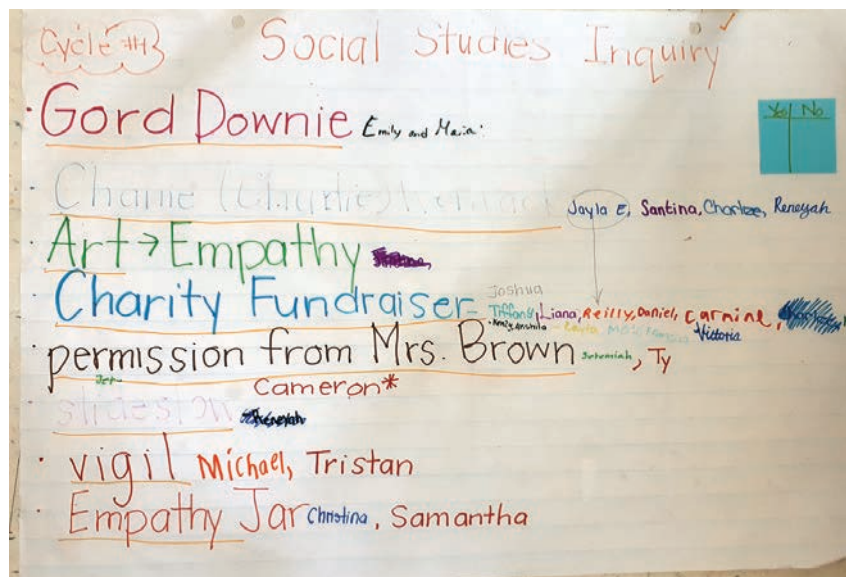 Cycle #4 Social Studies Inquiry
Yes No
Gord Downie Emily and Maria
Chanie (Charlie) Jayla E, Santina, Charlize, Reneyah
Art → Empathy
Joshua
Charity Fundraiser - Tiffany, Liana, Reilly, Daniel, Carnine,
Victoria
permission from Mrs. Brown Jeremiah, Ty
Cameron*
slides on Reneyah
vigil Michael, Tristan
Empathy Jar Christina, Samantha